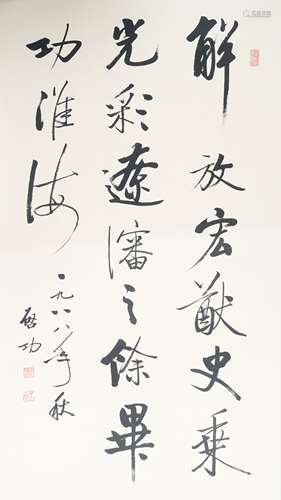 解放宏猷史乘
光彩遼瀋之餘畢
功淮海
一九八八年秋
啓功